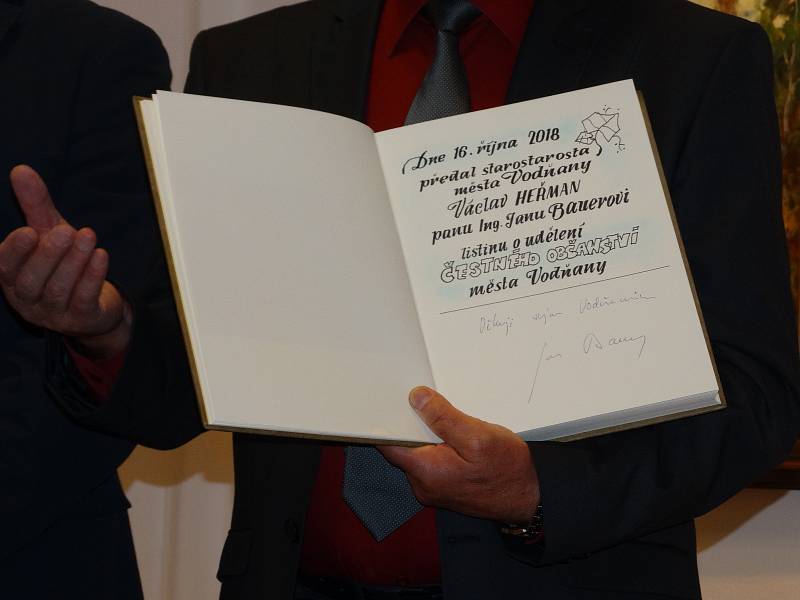 Dne 16. října 2018
předal starostarosta
města Vodňany
Václav HEŘMAN
panu Ing. Janu Bauerovi
listinu o udělení
ČESTNÉHO OBČANSTVÍ
města Vodňany
Děkuji
Jan Bauer